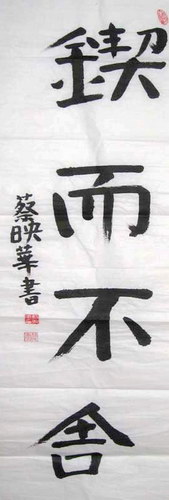 鍥而不舍
蔡映華書